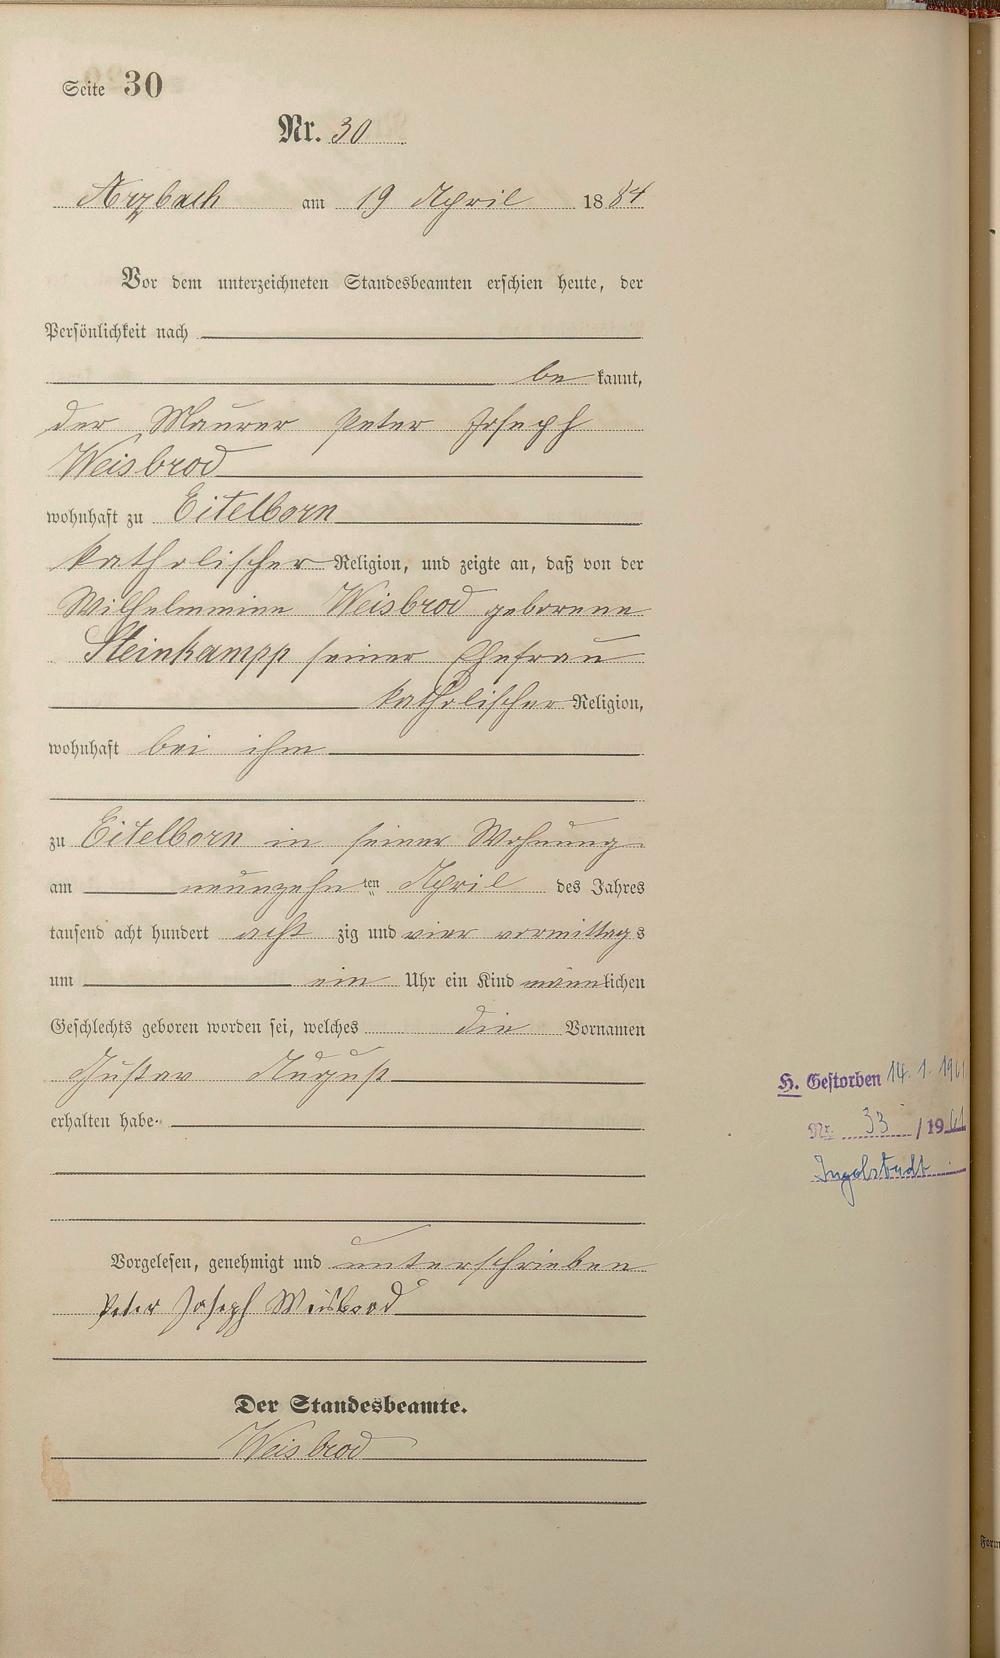 Seite 30
Nr. 30
Arzbach am 19 April 1884
Vor dem unterzeichneten Standesbeamten erschien heute, der
Persönlichkeit nach
be kannt,
der Maurer Peter Joseph
Weisbrod
wohnhaft zu Eitelborn
katholischer Religion, und zeigte an, daß von der
Wilhelmmine Weisbrod geborene
Steinkampp seiner Ehefrau
katholischer Religion,
wohnhaft bei ihm
zu Eitelborn in seiner Wohnung
am neunzehn ten April des Jahres
tausend acht hundert acht zig und vier vormittags
um ein Uhr ein Kind männlichen
Geschlechts geboren worden sei, welches die Vornamen
Gustav August
erhalten habe.
H. Gestorben 14. 1. 1961
Nr. 33 / 1961
Ingolstadt
Vorgelesen, genehmigt und unterschrieben
Peter Joseph Weisbrod
Der Standesbeamte.
Weisbrod